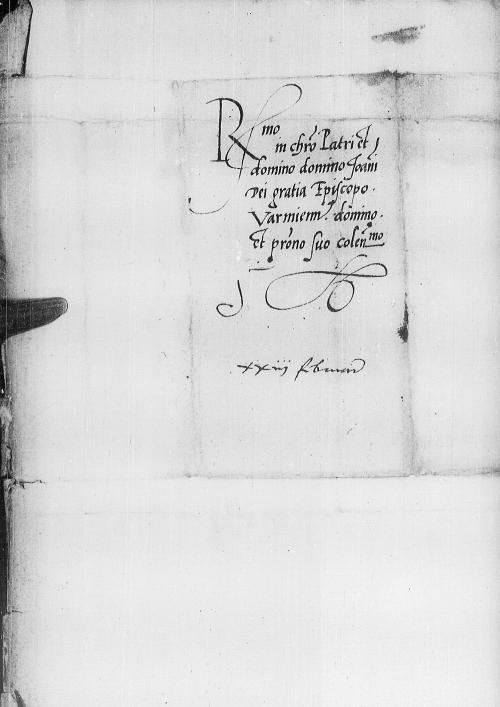 R mo
in chro Patri et
domino domino Joani
Dei gratia Episcopo.
Varmienn. domino.
et prono suo colen mo
xxiij februarii